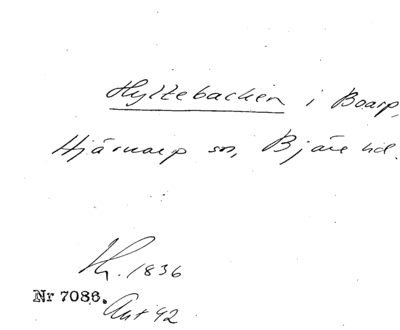 Hyltebacken i Boarp,
Hjärnarp sn, Bjäre hd.
1836
Nr 7086.
Ant 42